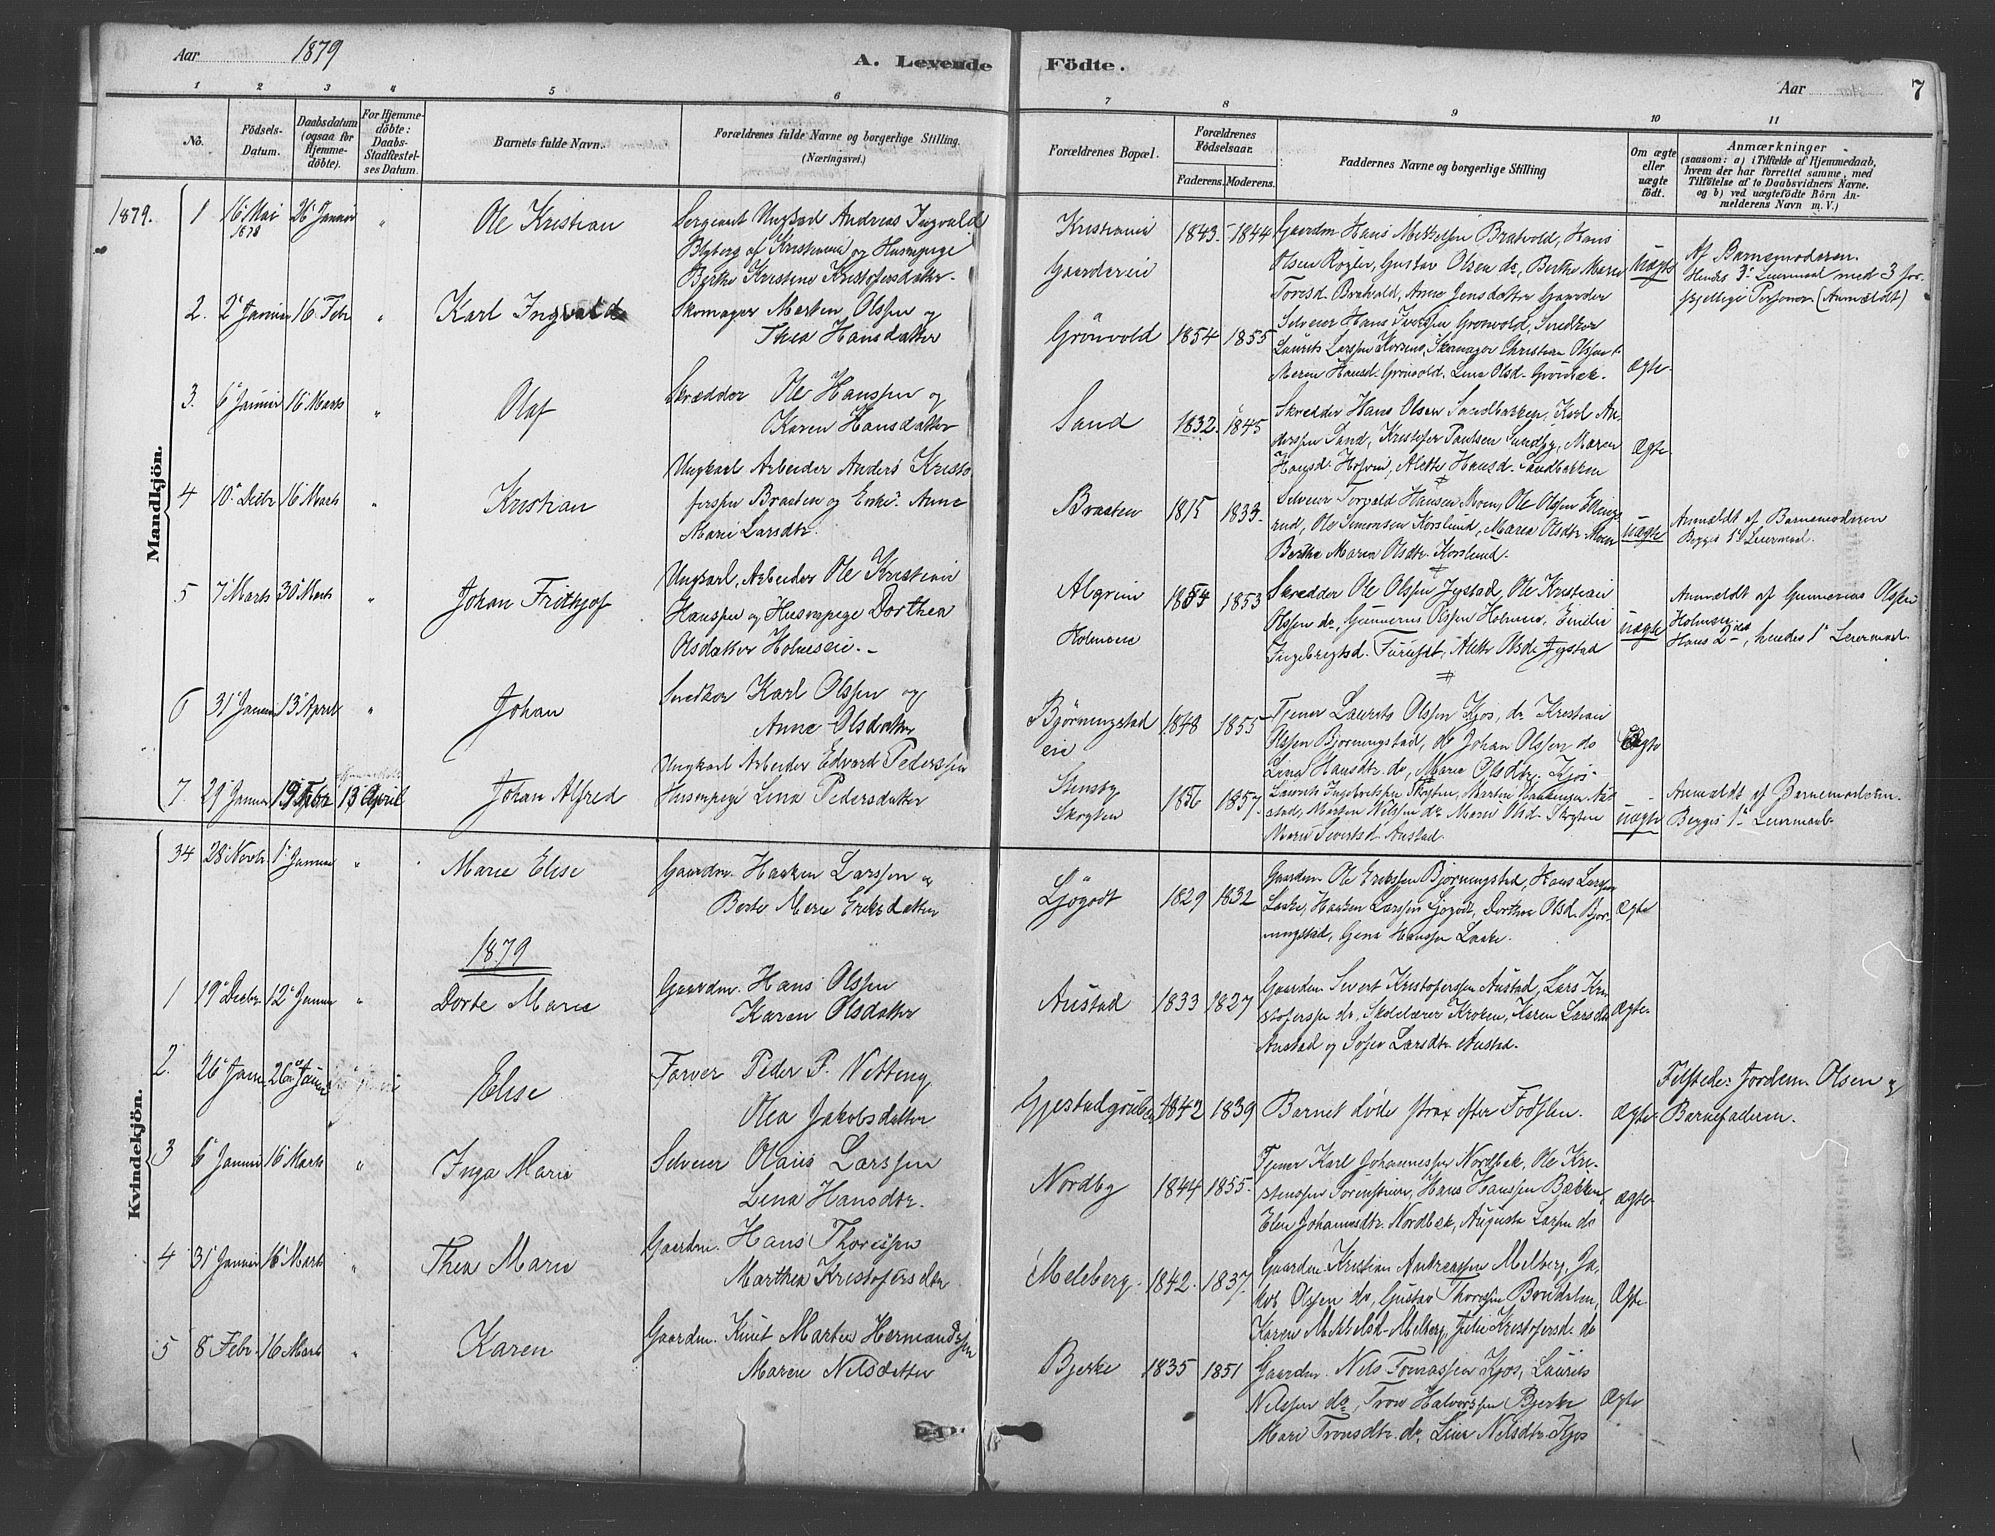 Aar 1879 A. Levende Födte. Aar 7
1 2 3 4 5 6 7 8 9 10 11
No.
Födsels-
Datum.
Daabsdatum
(ogsaa for
Hjemme-
döbte).
For Hjemme-
döbte:
Daabs-
Stadfæstel-
ses Datum.
Barnets fulde Navn.
Forældrenes fulde Navne og borgerlige Stilling.
(Næringsvei.)
Forældrenes Bopæl.
Forældrenes
Födselsaar.
Faderens. Moderens.
Faddernes Navne og borgerlige Stilling
Om ægte
eller
uægte
födt.
Anmærkninger
(saasom: a) i Tilfælde af Hjemmedaab,
hvem der har forrettet samme, med
Tilföielse af to Daabsvidners Navne.
og b) ved uægtefödte Börn An-
melderens Navn m. V.)
Mandkjön.
1879.
1 16 Mai 1878 26 Januar " Ole Kristian
Sergeant Ungkarl Andreas Ingvald
Blyberg af Kristiania og Husmpige
Berthe Kristine Kristofersdatter
Kristiania
Gaardereie
1843 1844
Gaardm Hans Mikkelsen Bratvold, Hans
Olsen Rogler, Gustav Olsen do, Berthe Marie
Toresd. Bratvold, Anne Jensdatter Gaarder
Uægte
Af Barnemoderen.
Hendes 3' Leiermaal med 3 for-
skjellige Personer (Anmældt)
2. 2 Januar 16 Febr " Karl Ingvald
Skomager Morten Olssen og
Thea Hansdatter
Grönvold 1854 1855
Selveier Hans Iversen Gronvold, Snedker
Laurits Larssen Korsens, Skomager Christian Olssen
Maren Hansd. Gronvold. Lina Olsd. Gronbæk.
Ægte
3. 6 Januar 16 Marts " Olaf
Skrædder Ole Hanssen og
Karen Hansdatter
Sand 1832. 1845
Skrædder Hans Olsen Sandbakken, Karl An-
derssen Sand, Kristofer Paulsen Sundby, Maren
Hansd. Hofvin, Alette Hansd. Sandbakken
Ægte
4 10 Decbr 16 Marts " Kristian
Ungkarl Arbeider Anders Kristo
ferssen Braaten og Enke Anne
Marie Larsdtr.
Braaten 1815 1833
Selveier Torvald Hansen Moen, Ole Olssen Elling-
rud, Ole Simonsen Korslund, Maren Olsdtr Moen
Berthe Maren Olsdtr. Korslund.
uægte
Anmældt af Barnemoderen
Begges 1' Leiermaal.
5 7 Marts 30 Marts " Johan Frithjof
Ungkarl, Arbeider Ole Kristian
Hanssen og Husmpige Dorthea
Olsdatter Holmseie.
Algrim
Holmseie
1854 1853
Skrædder Ole Olssen Jystad, Ole Kristian
Olssen do, Gunnerius Olssen Holmseie, Emilie
Ingebregtsd. Furuset, Alette Olsd. Jystad
uægte
Anmældt af Gunnerius Olssen
Holmseie
Hans 2det, hendes 1' Leiermaal.
6 31 Januar 13 April " Johan
Snedker Karl Olssen og
Anne Olsdatter
Björningstad
eie
1848 1855
Tjener Laurits Olssen Kjos, do Kristian
Olssen Bjorningstad, do Johan Olssen do
Lina Hansdtr. do, Marie Olsdtr. Kjos
Ægte
7. 29 Januar 19 Febr 13 April Johan Alfred
Ungkarl Arbeider Edvard Pederssen
Husmpige Lina Pedersdatter
Stensby
Skogten
1856 1857
stad, Morten Nilssen do Marie Olsd. Skogten
Marie Sivertsd. Austad.
uægte
Anmældt af Barnemoderen.
Begges 1' Leiermaal
Kvindekjön.
34 28 Novbr. 1 Januar " Marie Elise
Gaardm. Haaken Larssen og
Berte Marie Eriksdatter
Ljögodt 1829 1832
Gaardm Ole Erikssen Björningstad, Hans Larssen
Laake, Haaken Larssen Ljögodt, Dorthea Olsd. Bjor-
ningstad, Gina Hanssen Laake.
Ægte
1879
1 19 Decbr. 12 Januar " Dorte Marie
Gaardm. Hans Olssen
Karen Olsdatter
Austad 1833 1827
Gaardm Sivert Kristoferssen Austad, Lars Kri-
stoferssen do, Skolelærer Kroken, Karen Larsd. do
Austad og Sofie Larsdtr Austad.
Ægte
2. 26 Janr. 26 Januar Elise
Farver Peder P. Netteng
Olea Jakobsdatter
Gjestadgruben 1842 1839
Barnet döde strax efter Födslen.
Ægte
Tilstede: Jordem. Olsen og
Barnefaderen.
3 6 Januar 16 Marts " Inga Marie
Selveier Olaus Larssen
Lina Hansdtr.
Nordby 1844 1855.
Tjener Karl Johannessen Nordbæk, Ole Kri-
stenssen, Hans Hanssen Bakken
Elen Johannesdtr. Nordbæk, Augusta Larsen do
Ægte
4 31 Januar 16 Marts " Thea Marie
Gaardm. Hans Thoressen
Marthea Kristofersdtr
Meleberg 1842. 1837.
Gaardm Kristian Andreassen Melberg, Ja-
kob Olssen do, Gustav Thoressen Bondalen,
Karen Mikkelsd. Melberg, Julie Kristofersd. do
Ægte
5 8 Febr. 16 Marts " Karen
Gaardm. Knut Martin Hermandssen
Maren Nilsdatter
Bjerke 1835 1851
Gaardm. Nils Tomassen Kjos, Laurits
Nilssen do, Tron Halvorssen Bjerke
Mari Tronsdtr. do, Line Nilsdtr. Kjos
Ægte